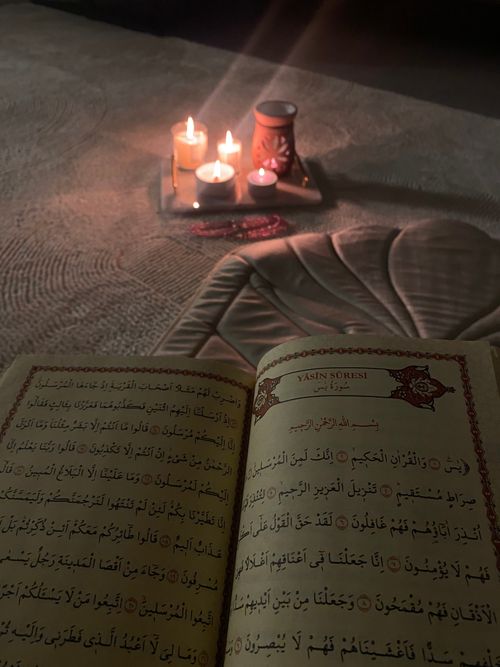 YÂSÎN SÛRESİ
سُورَةُ يٰسٓ
بِسْمِ اللّٰهِ الرَّحْمٰنِ الرَّحِيمِ
يٰسٓ ﴿١﴾ وَالْقُرْاٰنِ الْحَكِيمِ ﴿٢﴾ اِنَّكَ لَمِنَ الْمُرْسَلِينَ
صِرَاطٍ مُسْتَقِيمٍ ﴿٤﴾ تَنْزِيلَ الْعَزِيزِ الرَّحِيمِ ﴿٥﴾ لِتُنْذِرَ
اُنْذِرَ اٰبَٓاؤُهُمْ فَهُمْ غَافِلُونَ ﴿٦﴾ لَقَدْ حَقَّ الْقَوْلُ عَلٰٓى
فَهُمْ لَا يُؤْمِنُونَ ﴿٧﴾ اِنَّا جَعَلْنَا فِٓي اَعْنَاقِهِمْ اَغْلَالًا فَهِيَ
الْاَذْقَانِ فَهُمْ مُقْمَحُونَ ﴿٨﴾ وَجَعَلْنَا مِنْ بَيْنِ اَيْدِيهِمْ
سَدًّا فَاَغْشَيْنَاهُمْ فَهُمْ لَا يُبْصِرُونَ
وَاضْرِبْ لَهُمْ مَثَلًا اَصْحَابَ الْقَرْيَةِ اِذْ جَٓاءَهَا الْمُرْسَلُونَ
﴿١٣﴾ اِذْ اَرْسَلْنَٓا اِلَيْهِمُ اثْنَيْنِ فَكَذَّبُوهُمَا فَعَزَّزْنَا بِثَالِثٍ فَقَالُٓوا
اِنَّٓا اِلَيْكُمْ مُرْسَلُونَ ﴿١٤﴾ قَالُوا مَٓا اَنْتُمْ اِلَّا بَشَرٌ مِثْلُنَا وَمَٓا اَنْزَلَ
الرَّحْمٰنُ مِنْ شَيْءٍ اِنْ اَنْتُمْ اِلَّا تَكْذِبُونَ ﴿١٥﴾ قَالُوا رَبُّنَا يَعْلَمُ اِنَّٓا
اِلَيْكُمْ لَمُرْسَلُونَ ﴿١٦﴾ وَمَا عَلَيْنَٓا اِلَّا الْبَلَاغُ الْمُبِينُ ﴿١٧﴾ قَالُٓوا
اِنَّا تَطَيَّرْنَا بِكُمْ لَئِنْ لَمْ تَنْتَهُوا لَنَرْجُمَنَّكُمْ وَلَيَمَسَّنَّكُمْ
عَذَابٌ اَلِيمٌ ﴿١٨﴾ قَالُوا طَٓائِرُكُمْ مَعَكُمْ اَئِنْ ذُكِّرْتُمْ بَلْ
مُسْرِفُونَ ﴿١٩﴾ وَجَٓاءَ مِنْ اَقْصَا الْمَدِينَةِ رَجُلٌ يَسْعٰى
اتَّبِعُوا الْمُرْسَلِينَ ﴿٢٠﴾ اِتَّبِعُوا مَنْ لَا يَسْـَٔلُكُمْ اَجْرًا
وَمَا لِيَ لَٓا اَعْبُدُ الَّذِي فَطَرَنِي وَاِلَيْهِ